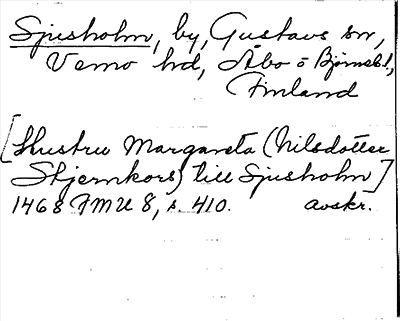 Sjusholm, by, Gustavs sn,
Vemo hd, Åbo o Björneb. l,
Finland
[Hustru Margareta (Nilsdotter
Stjernkors) till Sjusholm]
1468 FMU 8, s. 410. avskr.